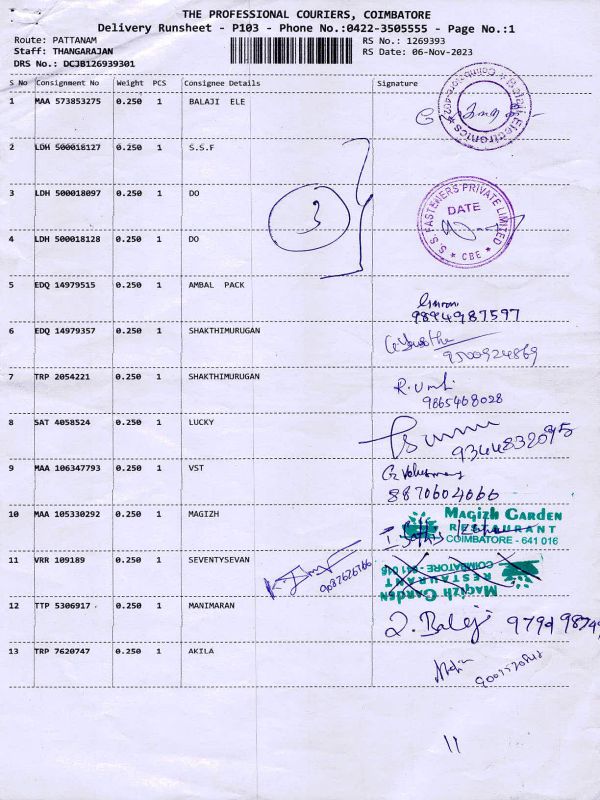 THE PROFESSIONAL COURIERS, COIMBATORE
Delivery Runsheet - P103 - Phone No.:0422-3505555 - Page No.:1
Route: PATTANAM
RS No.: 1269393
Staff: THANGARAJAN
RS Date: 06-Nov-2023
DRS No.: DCJB126939301
S No Consignment No Weight PCS Consignee Details Signature
1 MAA 573853275 0.250 1 BALAJI ELE
Balaji Electronics
2 LDH 500018127 0.250 1 S.S.F
3 LDH 500018097 0.250 1 DO
3
S. S. FASTENERS PRIVATE LIMITED
DATE
* CBE *
4 LDH 500018128 0.250 1 DO
5 EDQ 14979515 0.250 1 AMBAL PACK
9894987597
6 EDQ 14979357 0.250 1 SHAKTHIMURUGAN
9500924869
7 TRP 2054221 0.250 1 SHAKTHIMURUGAN
9865468028
8 SAT 4058524 0.250 1 LUCKY
9344832095
9 MAA 106347793 0.250 1 VST
8870604066
10 MAA 105330292 0.250 1 MAGIZH
MAGIZH GARDEN
RESTAURANT
COIMBATORE - 641 016
11 VRR 109189 0.250 1 SEVENTYSEVAN
MAGIZH GARDEN
RESTAURANT
COIMBATORE - 641 016
12 TTP 5306917 0.250 1 MANIMARAN
Balaji
13 TRP 7620747 0.250 1 AKILA
11